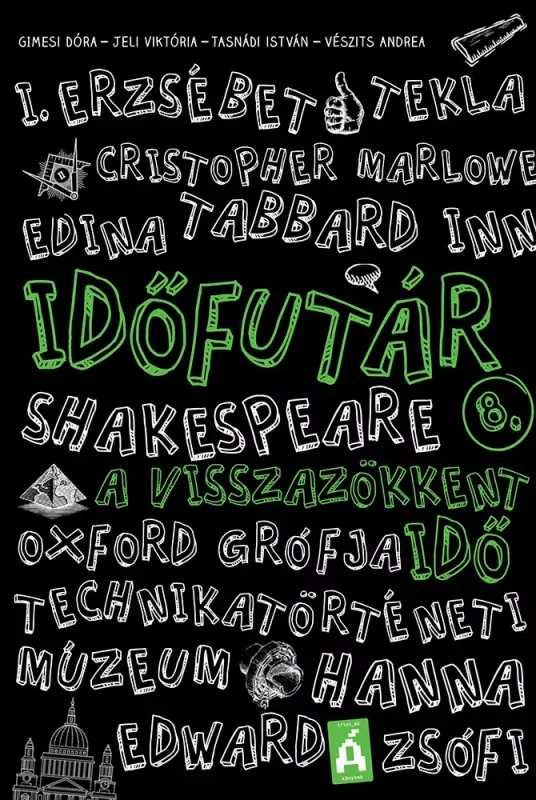 GIMESI DÓRA – JELI VIKTÓRIA – TASNÁDI ISTVÁN – VÉSZITS ANDREA
I. ERZSÉBET TEKLA
CRISTOPHER MARLOWE
EDINA TABBARD INN
IDŐFUTÁR
SHAKESPEARE 8.
A VISSZAZÖKKENT
OXFORD GRÓFJA IDŐ
TECHNIKATÖRTÉNETI
MÚZEUM HANNA
EDWARD ZSÓFI